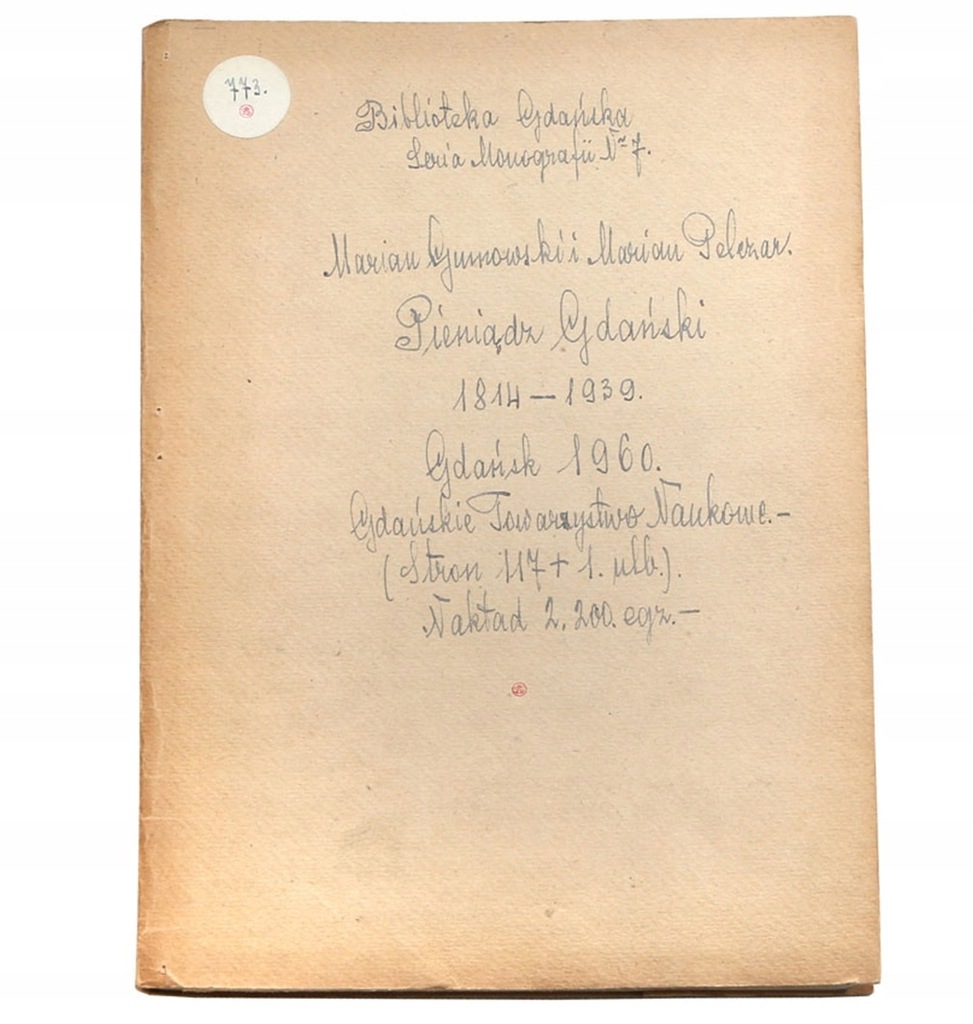 773.
Biblioteka Gdańska
Seria Monografii Nr 7.
Marian Gumowski i Marian Pelczar.
Pieniądz Gdański
1814 – 1939.
Gdańsk 1960.
Gdańskie Towarzystwo Naukowe. –
(Stron 117 + 1. nlb.).
Nakład 2.200. egz. –